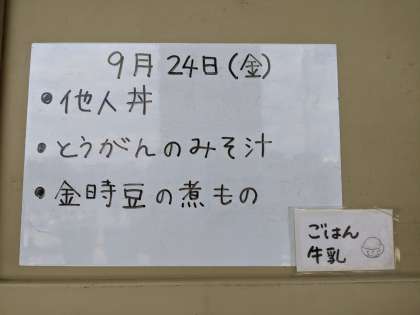 9月 24日(金)
• 他人丼
• とうがんのみそ汁
• 金時豆の煮もの
ごはん
牛乳